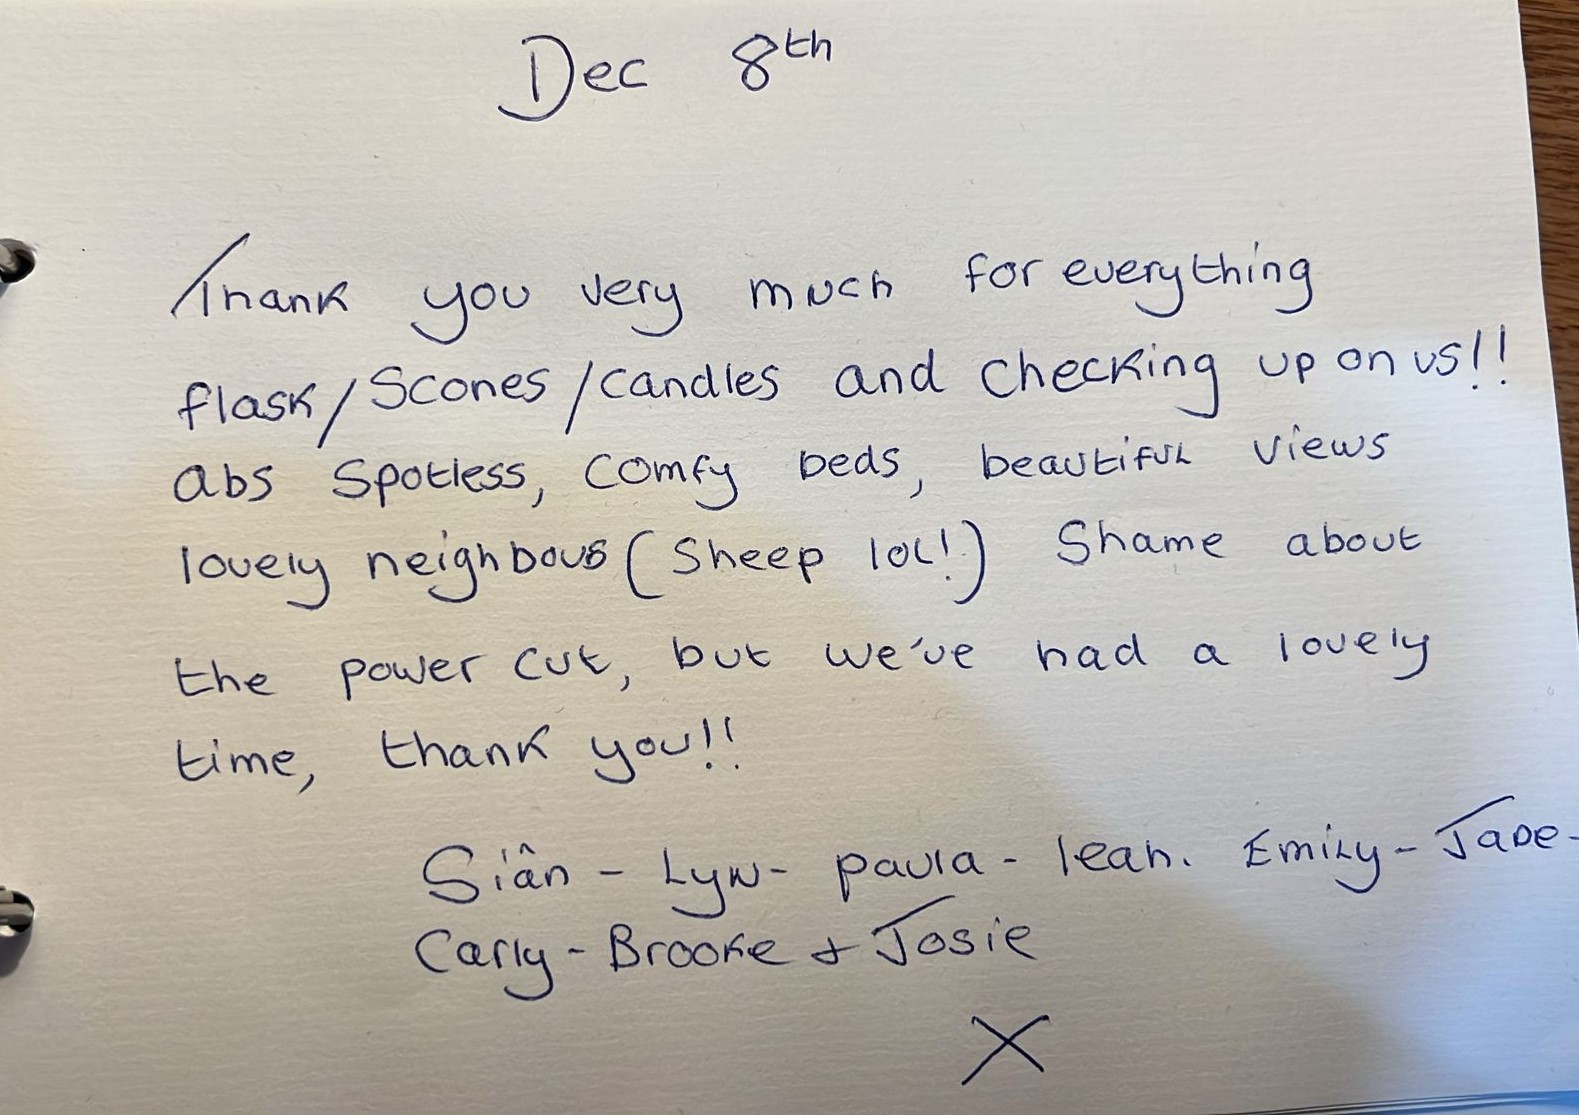 Dec 8th
Thank you very much for everything
flask/Scones/candles and checking up on us!!
abs spotless, comfy beds, beautiful views
lovely neighbous (Sheep lol!) Shame about
the power cut, but we've had a lovely
time, thank you!!
Siân - Lyn - paula - leah. Emily - Jade -
Carly - Brooke & Josie
X